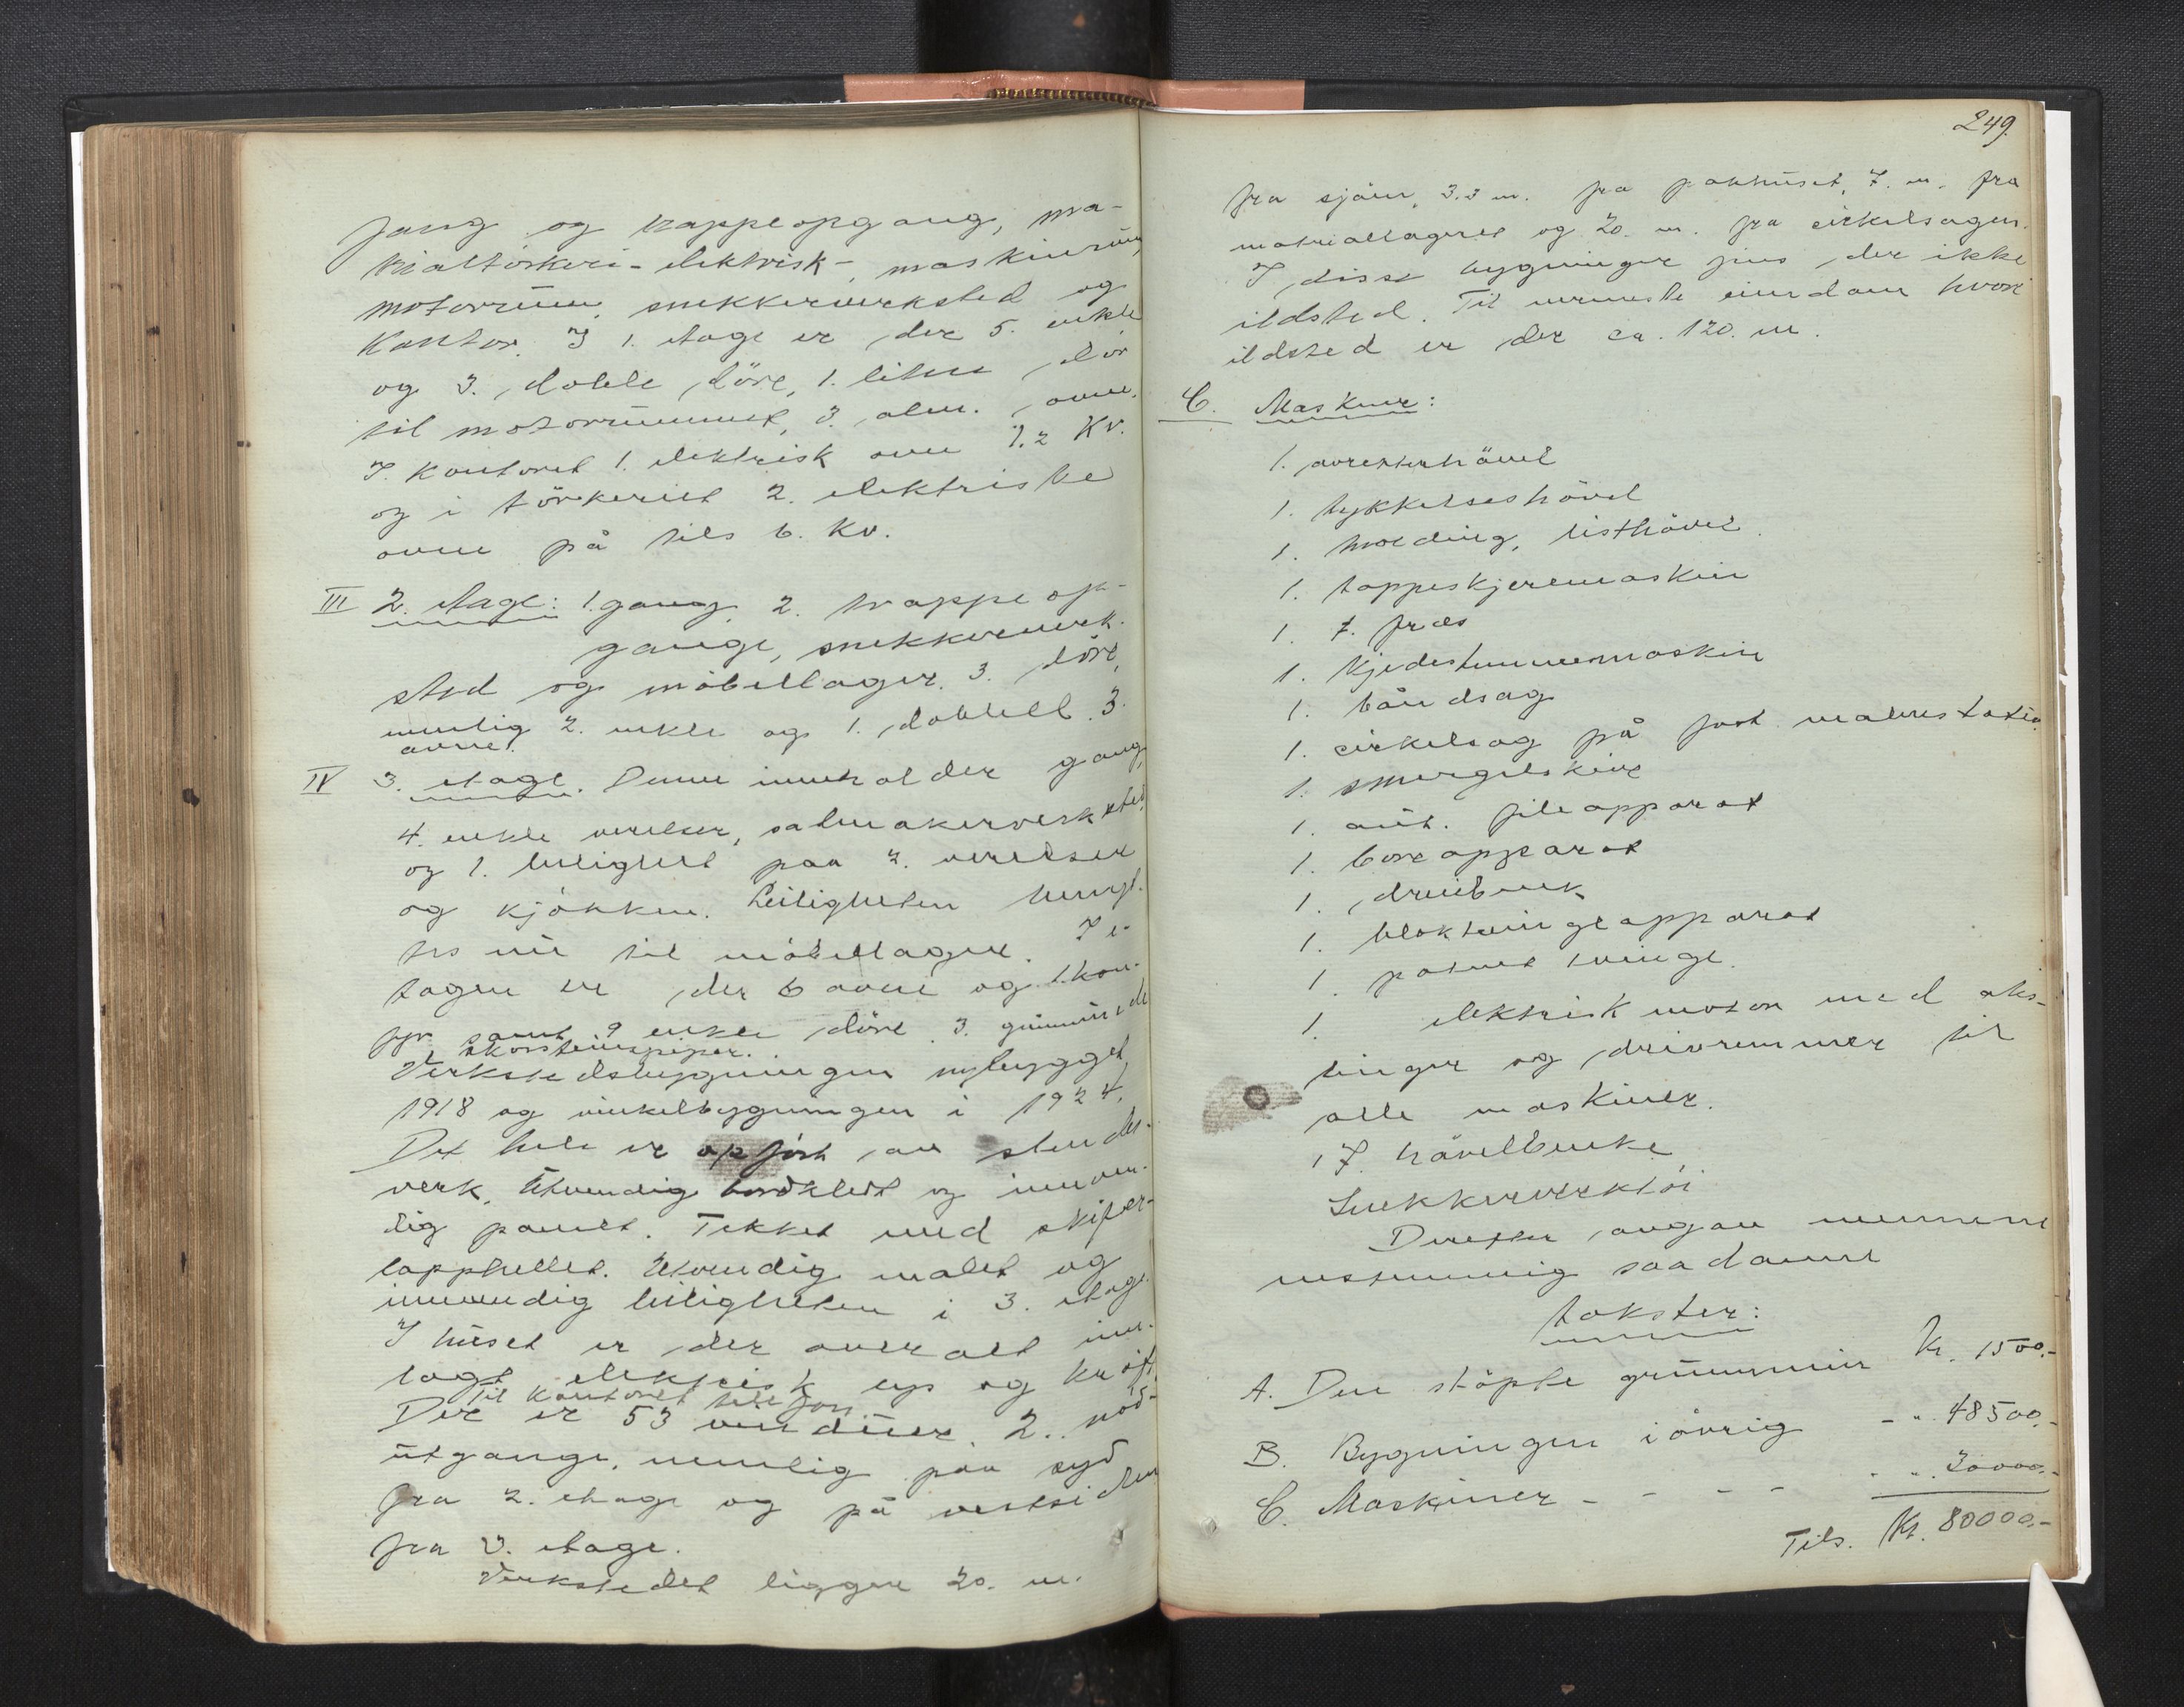 gang og trappeopgang, ma-
trialtörkeri - elektrisk -, maskinrüm,
motorrüm, snekkerverksted og
Kontor. I 1. etage er der 5. enkle
og 3. doble döre, 1. liten dör
til motorrümmet, 3. alm. ovne.
I. Kontoret 1. elektrisk ovn 1.2 Kv.
og i törkeriet 2. elektriske
ovne på tils 6. Kv.
III 2. etage: 1. gang, 2. trappeop-
gange, snekkerverk-
sted og möbellager. 3. döre,
nemlig 2. enkle og 1. dobbelt. 3.
ovne.
IV 3. etage. Denne inneholder gang,
4. enkle værelser, salmakerverksted,
og 1. leilighet paa 2. værelser
og kjökken. Leiligheten benyt-
tes nü til möbellager. I e-
tagen er der 6 ovne og 1. kom-
fyr samt 9 enkle döre 3. grünmürede
skorsteinspiper.
Verkstedsbygningen nybygget
1918 og vinkelbygningen i 1924.
Det hele er opfört av stender-
verk. Utvendig bordkledt og innven-
dig panelt. Tekket med skifer-
lapphellet. Utvendig malet og
innvendig leiligheten i 3. etage.
I hüset er der overalt inn-
lagt elektrisk lys og kraft.
Til Kontoret telefon
Der er 53 vindüer. 2. nöd-
ütgange, nemlig paa syd
fra 2. etage og på vestsiden
fra 3. etage.
Verkstedet ligger 20. m.
249.
fra sjöen, 3.3 m. fra pakhüset, 7. m. fra
matriallageret og 20. m. fra cirkelsagen.
I disse bygninger fins der ikke
ildsted. Til nermeste eiendom hvori
ildsted er der ca. 120. m.
C. Maskiner:
1. avretterhövel
1. tykkelseshövel
1. molding, listhövel.
1. tappeskjeremaskin
1. fræs
1. Kjedestemmemaskin
1. båndsag
1. cirkelsag på fast
1. smergelskive
1. aüt. fileapparat
1. boreapparat
1. dreiebenk
1. bloktvingeapparat
1. patent tvinge.
1. elektrisk motor med aks-
linger og drivremmer til
alle maskiner.
17. hövelbenke
Snekkerverktöi
Derefter avgav mennene
enstemmig saadanne
takster:
A. Den stöpte grünnmür Kr. 1500.-
B. Bygningen iövrig - " 48500.-
C. Maskiner - - - - " 30000.-
Tils. Kr. 80000.-